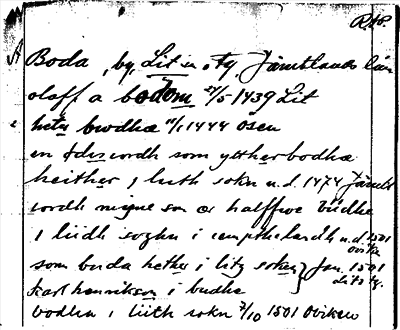 Boda, by, Lit sn o tg, Jämtlands län
olaff a bodom 27/5 1439 Lit
heter bwdhæ 11/1 1444 Åsen
en ordh som ytther bodhæ
heither i luth sokn u.d. 1474 Jämtl
iordh nigne som ær halffwe budhe
i liidh soghn i iempthelandh u.d. 1501
Oviken
som buda hether i litz soken Jon. 1501
Lits tg.
karl henrikson i budhe
bodhen i liith sokn 7/10 1501 Oviken